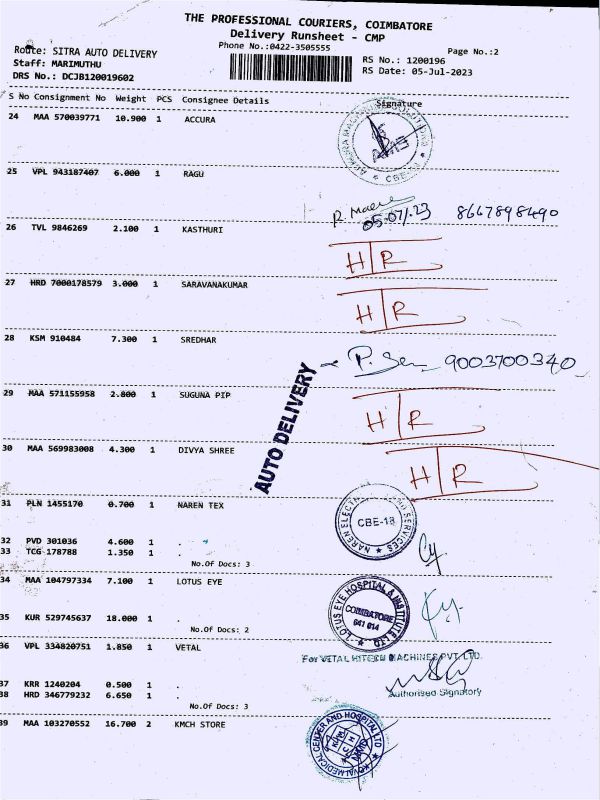 THE PROFESSIONAL COURIERS, COIMBATORE
Delivery Runsheet - CMP
Phone No.:0422-3505555
Page No.:2
Route: SITRA AUTO DELIVERY
Staff: MARIMUTHU
DRS No.: DCJB120019602
RS No.: 1200196
RS Date: 05-Jul-2023
S No Consignment No Weight PCS Consignee Details Signature
24 MAA 570039771 10.900 1 ACCURA
25 VPL 943187407 6.000 1 RAGU
05/07/23 8667898490
26 TVL 9846269 2.100 1 KASTHURI
H R
27 HRD 7000178579 3.000 1 SARAVANAKUMAR
H R
28 KSM 910484 7.300 1 SREDHAR
9003700340
29 MAA 571155958 2.800 1 SUGUNA PIP
H R
AUTO DELIVERY
30 MAA 569983008 4.300 1 DIVYA SHREE
H R
31 PLN 1455170 0.700 1 NAREN TEX
CBE-18
32 PVD 301036 4.600 1 .
33 TCG 178788 1.350 1 .
No.Of Docs: 3
34 MAA 104797334 7.100 1 LOTUS EYE
LOTUS EYE HOSPITAL & INSTITUTE LTD.
COIMBATORE
641 014
35 KUR 529745637 18.000 1 .
No.Of Docs: 2
36 VPL 334820751 1.850 1 VETAL
For VETAL HITECH MACHINES PVT. LTD.
37 KRR 1240204 0.500 1 .
38 HRD 346779232 6.650 1 .
Authorised Signatory
No.Of Docs: 3
39 MAA 103270552 16.700 2 KMCH STORE
KOVAI MEDICAL CENTER AND HOSPITAL LTD